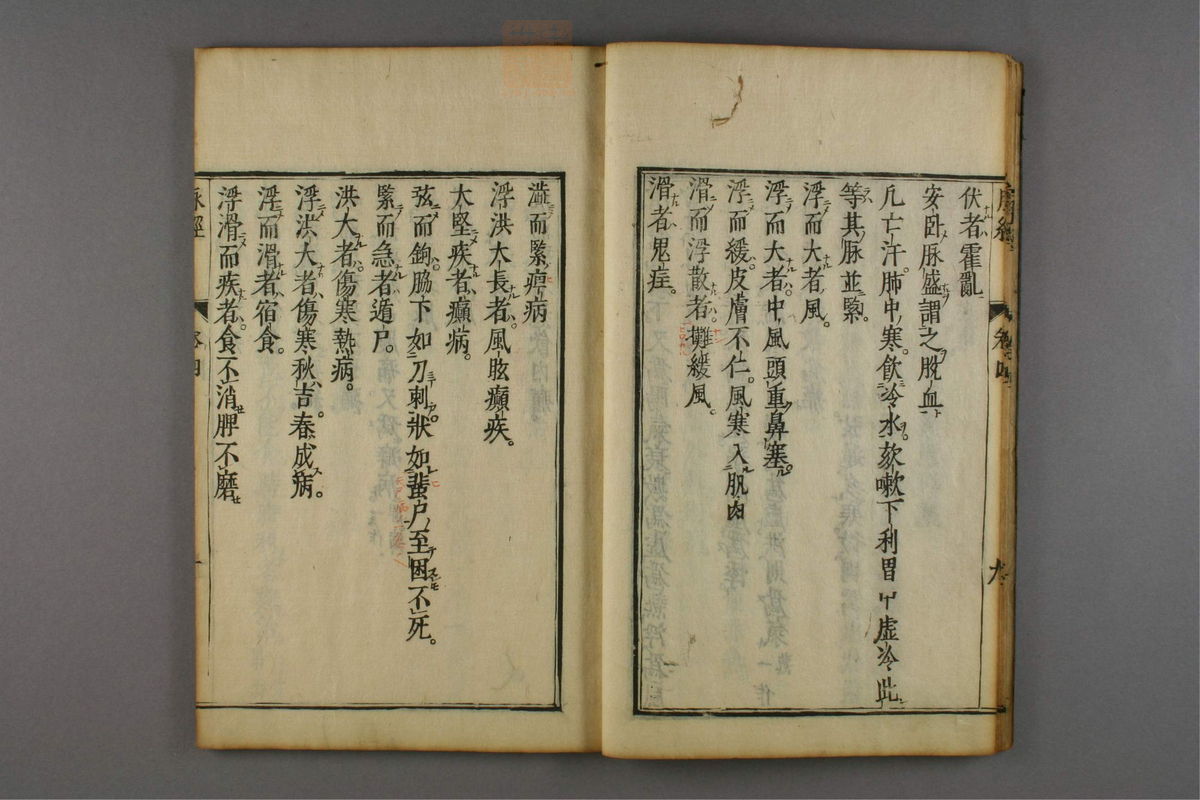 伏者霍亂
安臥脉盛謂之脫血
凡亡汗肺中寒。飲冷水欬嗽下利胃中虛冷此
等其脉並緊。
浮而大者風。
浮而大者中風頭重鼻塞。
浮而緩。皮膚不仁。風寒入肌肉
滑而浮散者攤緩風。
滑者鬼疰。
卷四
九
澁而緊痺病
浮洪大長者風眩癲疾。
大堅疾者癲病。
弦而鉤脇下如刀刺狀如蜚尸至困不死。
緊而急者遁尸。
洪大者傷寒熱病。
浮洪大者傷寒秋吉。春成病。
浮而滑者宿食。
浮滑而疾者食不消脾不磨
脉經